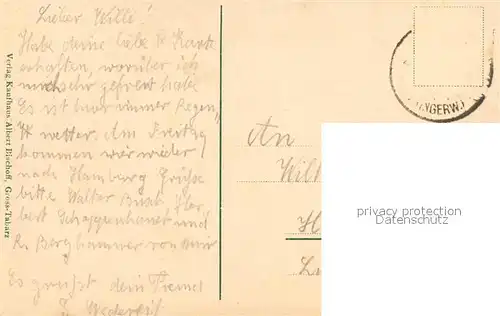 Lieber Willi!
Habe deine liebe Karte
erhalten, worüber ich
mich sehr gefreut habe
Es ist hier immer Regen,,
wetter. Am Freitag
kommen wir wieder
nach Hamburg Grüße
bitte Walter Busk Her,,
bert Schoppenhauer und
R. Berghammer von mir
Es grüßt dein Freund
Verlag Kaufhaus Albert Bischoff, Gross-Tabarz
An
Will
H
privacy protection
Datenschutz